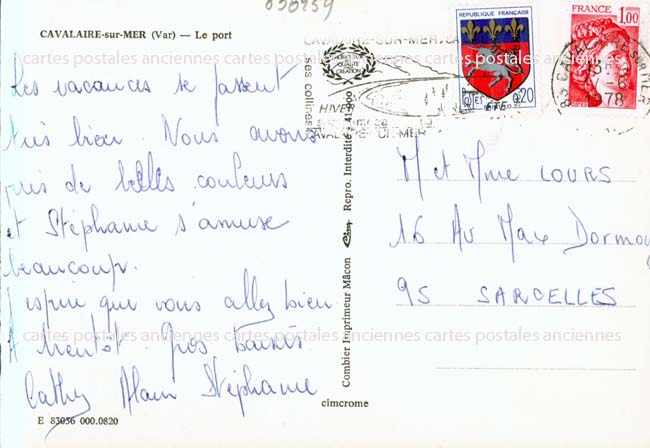 036959
CAVALAIRE-sur-MER (Var) — Le port
cartes postales anciennes cartes postales anciennes
Les vacances se passent
très bien. Nous avons
pris de belles couleurs
et Stéphanie s'amuse
beaucoup.
J'espère que vous allez bien.
A bientôt. Gros baisers
cartes postales anciennes cartes postales anciennes
Cathy Alain Stéphanie
E 83036 000.0820
cimcrome
Combier Imprimeur Mâcon Repro. Interdite : 41.900
CAVALAIRE-SUR-MER
ses collines
HIVER
ÉTÉ
CAVALAIRE-SUR-MER
REPUBLIQUE FRANÇAISE
0,20
FRANCE
1,00
78
83
M et Mme LOURS
16 Av Max Dormoy
95 SARCELLES